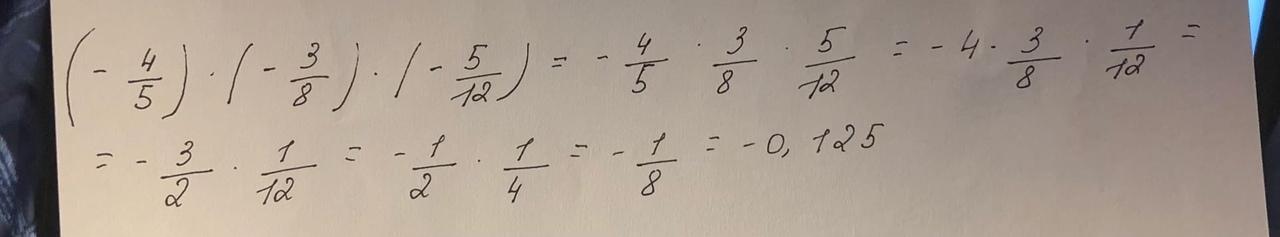 (- 4/5) · (- 3/8) · (- 5/12) = - 4/5 · 3/8 · 5/12 = - 4 · 3/8 · 1/12 =
= - 3/2 · 1/12 = - 1/2 · 1/4 = - 1/8 = - 0,125